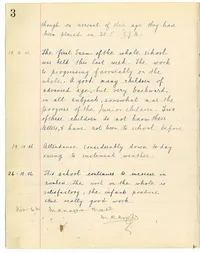 3
though on account of their age they had
been placed in St I.
The first exam of the whole school
was held this last week. The work
is progressing favourably on the
whole. A good many children of
advanced age, but very backward,
in all subjects, somewhat mar the
progress of the junior children. Two
of these children do not know their
letters, & have not been to school before.
Attendance considerably down to-day
owing to inclement weather.
This school continues to increase in
numbers. The work on the whole is
satisfactory; the infants produce
some really good work.
Managers